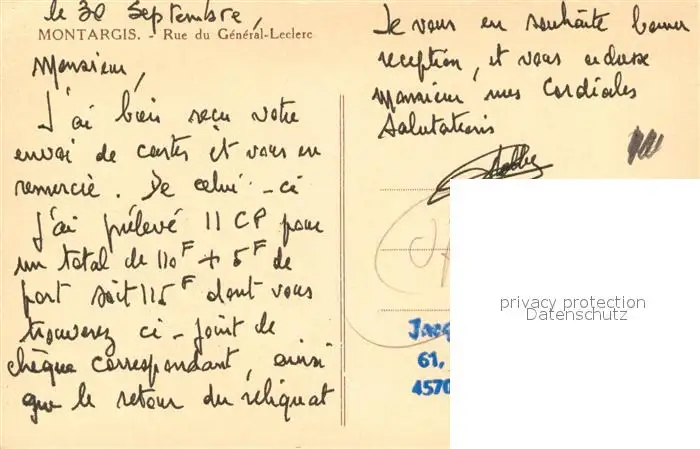 le 30 Septembre,
MONTARGIS. - Rue du Général-Leclerc
Monsieur,
J'ai bien reçu votre
envoi de cartes et vous en
remercie. De celui-ci
j'ai prélevé 11 CP pour
un total de 110F + 5F de
port soit 115F dont vous
trouverez ci-joint le
chèque correspondant, ainsi
que le retour du reliquat
Je vous en souhaite bonne
reception, et vous adresse
Monsieur mes Cordiales
Salutations
Jacq
61,
4570
privacy protection
Datenschutz